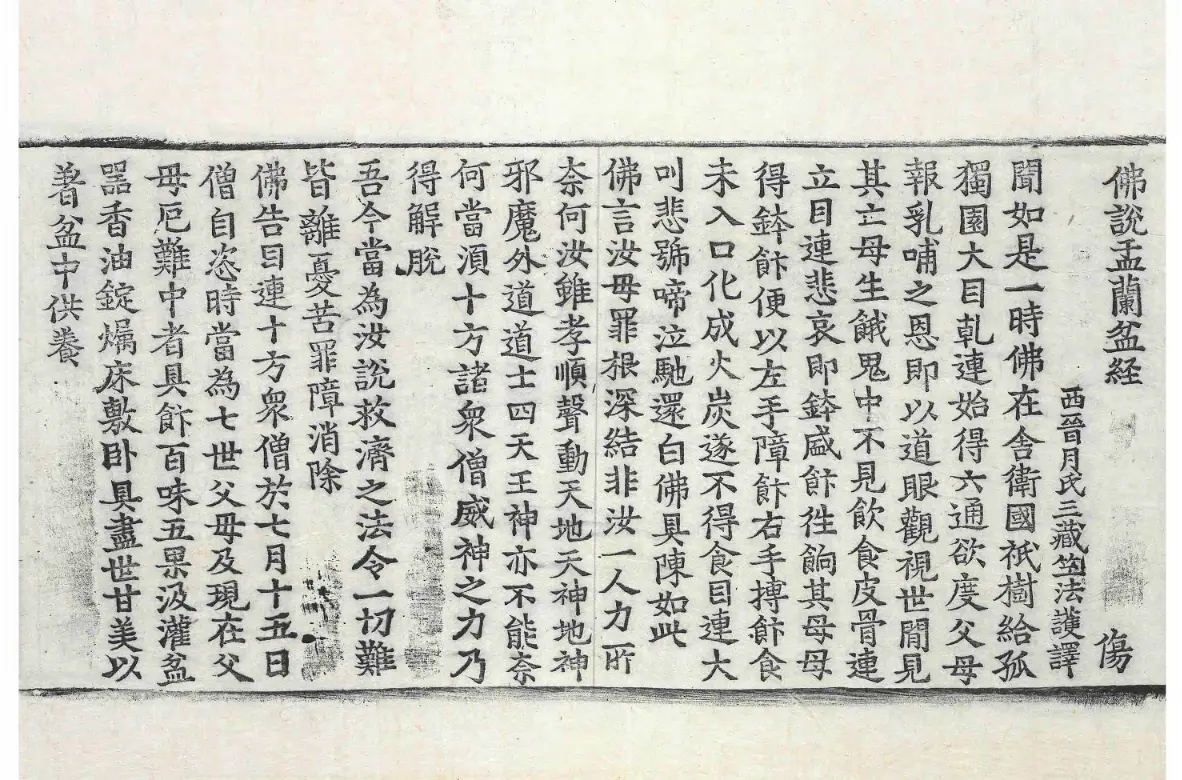 佛說盂蘭盆経 傷
西晉月氏三藏竺法護譯
聞如是一時佛在舎衛國祇樹給孤
獨園大目乹連始得六通欲度父母
報乳哺之恩即以道眼觀視世間見
其亡母生餓鬼中不見飲食皮骨連
立目連悲哀即鉢盛飰徃餉其母母
得鉢飰便以左手障飰右手摶飰食
未入口化成火炭遂不得食目連大
叫悲號啼泣馳還白佛具陳如此
佛言汝母罪根深結非汝一人力所
柰何汝雖孝順聲動天地天神地神
邪魔外道道士四天王神亦不能柰
何當湏十方諸衆僧威神之力乃
得解脫
吾今當為汝說救濟之法令一切難
皆離憂苦罪障消除
佛告目連十方衆僧於七月十五日
僧自恣時當為七世父母及現在父
母厄難中者具飰百味五果汲灌盆
器香油錠爥床敷卧具盡世甘美以
著盆中供養